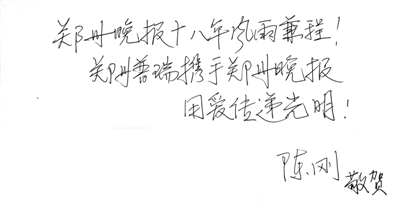 郑州晚报十八年风雨兼程！
郑州普瑞携手郑州晚报
用爱传递光明！
陈刚 敬贺